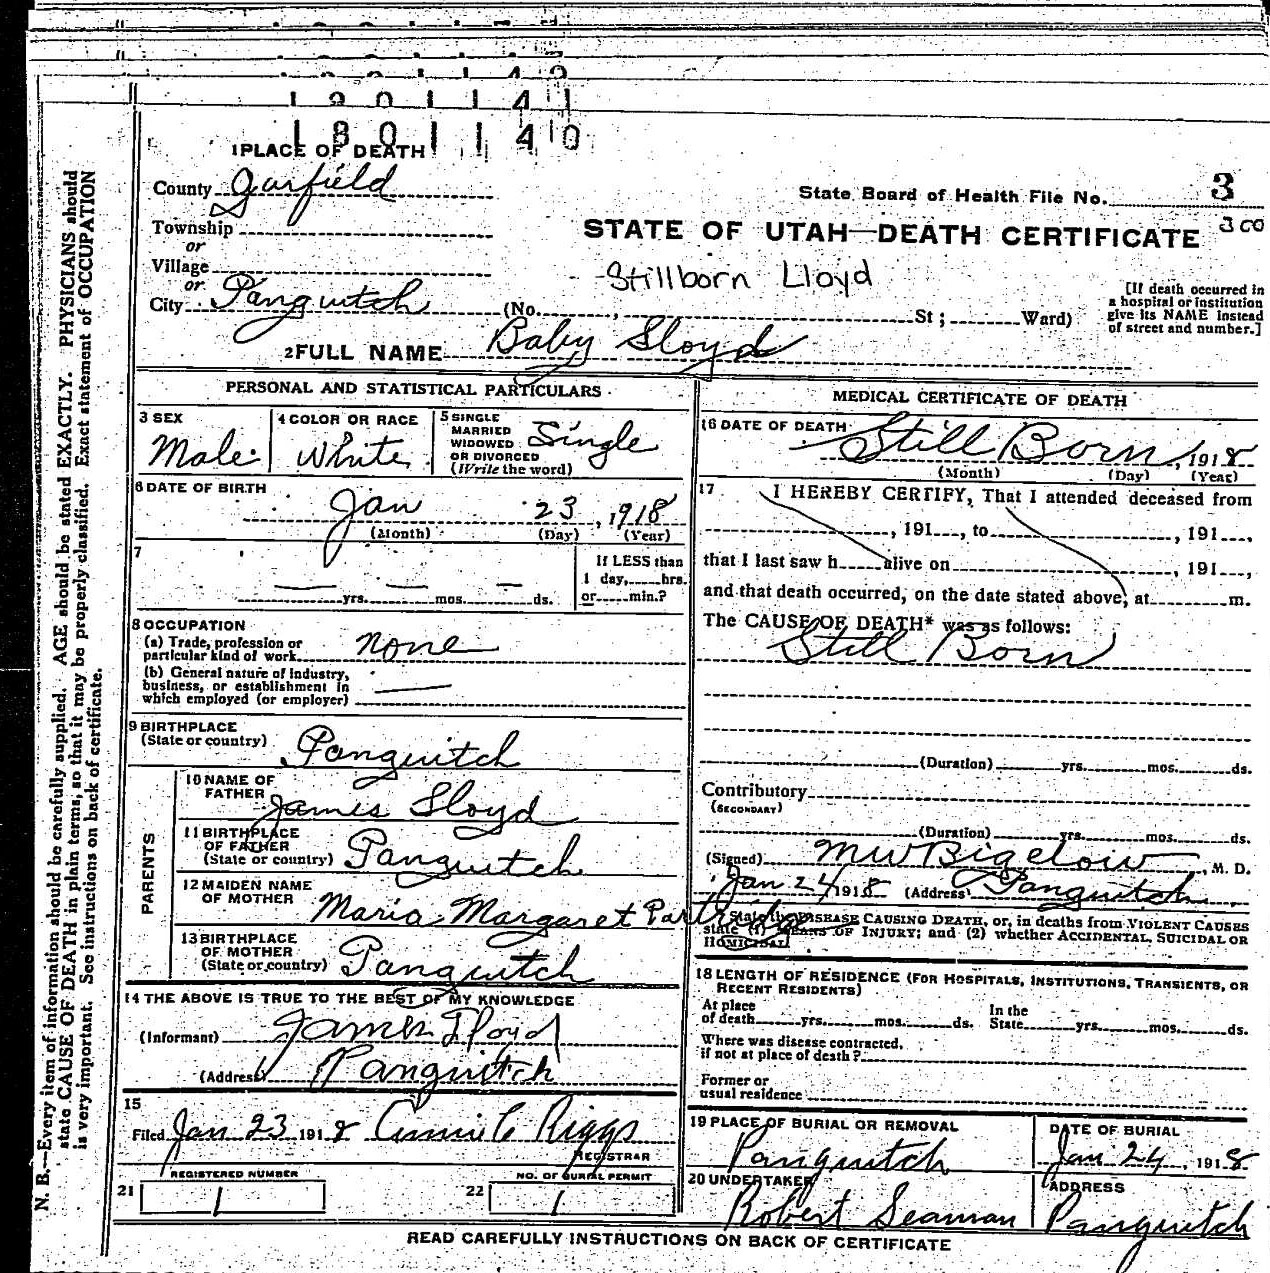 1801140
1 PLACE OF DEATH
County Garfield
State Board of Health File No. 3
300
Township
or
Village
or
City Panguitch
STATE OF UTAH—DEATH CERTIFICATE
Stillborn Lloyd
(No. , St ; Ward)
[If death occurred in
a hospital or institution
give its NAME instead
of street and number.]
2 FULL NAME Baby Lloyd
PERSONAL AND STATISTICAL PARTICULARS
3 SEX
Male
4 COLOR OR RACE
White
5 SINGLE
MARRIED
WIDOWED
OR DIVORCED
(Write the word)
Single
6 DATE OF BIRTH
Jan 23, 1918
(Month) (Day) (Year)
7
yrs. mos. ds.
If LESS than
1 day, hrs.
or min.?
8 OCCUPATION
(a) Trade, profession or
particular kind of work none
(b) General nature of industry,
business, or establishment in
which employed (or employer)
9 BIRTHPLACE
(State or country) Panguitch
PARENTS
10 NAME OF
FATHER
James Lloyd
11 BIRTHPLACE
OF FATHER
(State or country) Panguitch
12 MAIDEN NAME
OF MOTHER
Maria Margaret Partridge
13 BIRTHPLACE
OF MOTHER
(State or country) Panguitch
14 THE ABOVE IS TRUE TO THE BEST OF MY KNOWLEDGE
(Informant) James Lloyd
(Address) Panguitch
15
Filed Jan 23 1918 Annie C Riggs
REGISTRAR
REGISTERED NUMBER
21 1
NO. OF BURIAL PERMIT
22 1
MEDICAL CERTIFICATE OF DEATH
16 DATE OF DEATH
Still Born, 1918
(Month) (Day) (Year)
17 I HEREBY CERTIFY, That I attended deceased from
, 191 , to , 191 ,
that I last saw h alive on , 191 ,
and that death occurred, on the date stated above, at m.
The CAUSE OF DEATH* was as follows:
Still Born
(Duration) yrs. mos. ds.
Contributory
(SECONDARY)
(Duration) yrs. mos. ds.
(Signed) MW Bigelow, M. D.
Jan 24 1918 (Address) Panguitch
State the DISEASE CAUSING DEATH, or, in deaths from VIOLENT CAUSES
state (1) MEANS OF INJURY; and (2) whether ACCIDENTAL, SUICIDAL OR
HOMICIDAL
18 LENGTH OF RESIDENCE (FOR HOSPITALS, INSTITUTIONS, TRANSIENTS, OR
RECENT RESIDENTS)
At place
of death yrs. mos. ds.
In the
State yrs. mos. ds.
Where was disease contracted,
if not at place of death?
Former or
usual residence
19 PLACE OF BURIAL OR REMOVAL
Panguitch
DATE OF BURIAL
Jan 24, 1918
20 UNDERTAKER
Robert Seaman
ADDRESS
Panguitch
READ CAREFULLY INSTRUCTIONS ON BACK OF CERTIFICATE
N. B.—Every item of information should be carefully supplied. AGE should be stated EXACTLY. PHYSICIANS should
state CAUSE OF DEATH in plain terms, so that it may be properly classified. Exact statement of OCCUPATION
is very important. See instructions on back of certificate.